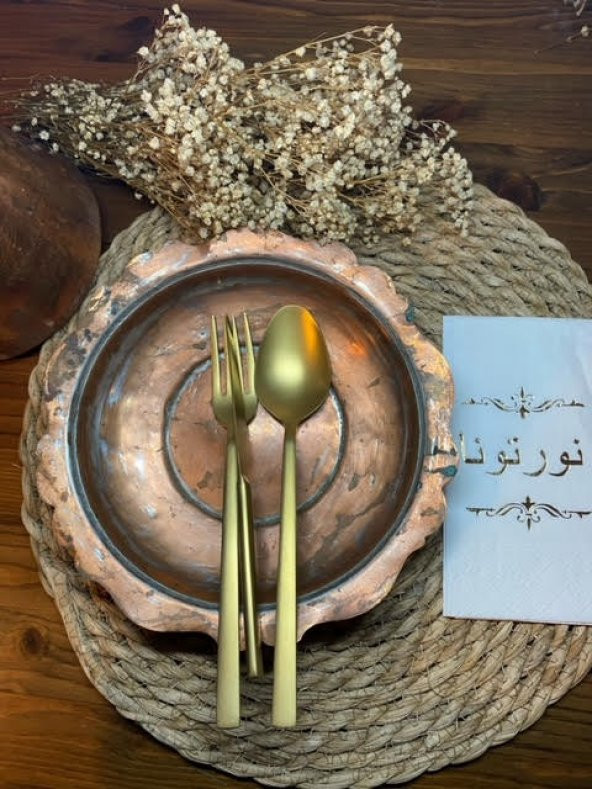 نورتونا